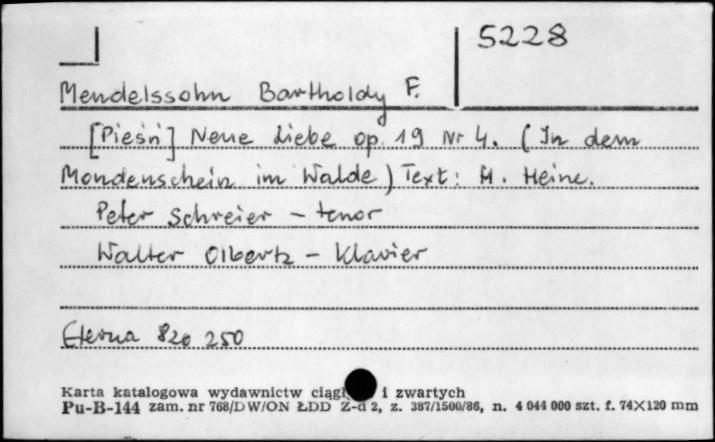 5228
Mendelssohn Bartholdy F.
[Pieśń] Neue Liebe op. 19 Nr 4. (In dem
Mondenschein im Walde) Text: H. Heine.
Peter Schreier - tenor
Walter Olbertz - Klavier
Eterna 820 250
Karta katalogowa wydawnictw i zwartych
Pu-B-144 zam. nr 768/DW/ON ŁDD Z-d 2, z. 387/1500/86, n. 4 044 000 szt. f. 74×120 mm